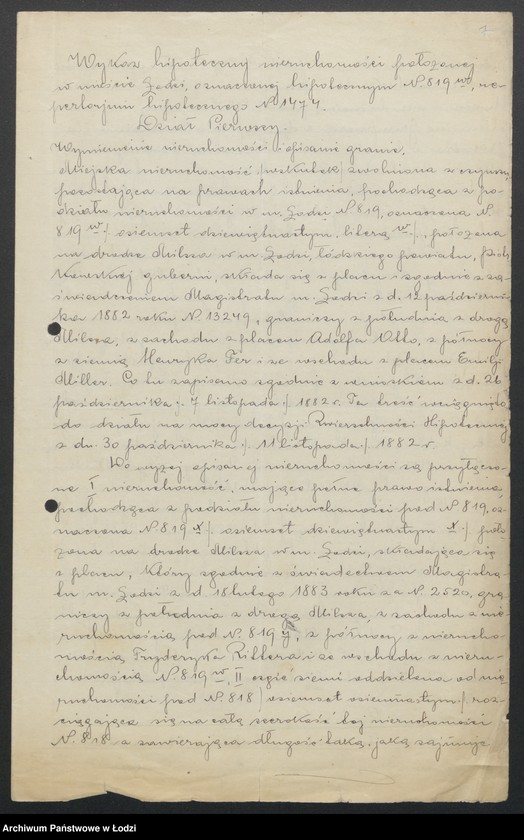 Wykaz hipoteczny nieruchomości położonej
w mieście Łodzi, oznaczonej hipotecznym N. 819 w, re-
pertorjum hipotecznego N 1474.
Dział Pierwszy.
Wymienienie nieruchomości i opisanie granic.
Miejska nieruchomość /wskutek/ zwolniona z czynszu,
posiadająca na prawach istnienia, pochodząca z po-
działu nieruchomości w m. Łodzi N. 819, oznaczona N.
819 w./. osiemset dziewiętnastym, literą w./. położona
na drodze Milsza w m. Łodzi, łódzkiego powiatu, piotr-
kowskiej gubernii, składa się z placu i zgodnie z za-
świadczeniem Magistratu m. Łodzi z d. 12 październi-
ka 1882 roku N. 13249, graniczy z południa z drogą
Milsza, z zachodu z placem Adolfa Otto, z północy
z ziemią Henryka Fer i ze wschodu z placem Emilji
Miller. Co tu zapisano zgodnie z wnioskiem z d. 26
października ./. 7 listopada ./. 1882 r. Ta treść wciągnięta
do działu na mocy decyzji Zwierzchności Hipotecznej
z dn. 30 października ./. 11 listopada ./. 1882 r.
Do wyżej opisanej nieruchomości są przyłączo-
ne I nieruchomość, mająca pełne prawo istnienia,
pochodząca z podziału nieruchomości pod N. 819, oz-
naczona N. 819 X ./. osiemset dziewiętnastym X ./. poło-
żona na drodze Milsza w m. Łodzi, składająca się
z placu, który zgodnie z świadectwem Magistra-
tu m. Łodzi z d. 15 lutego 1883 roku za N. 2520, gra-
niczy z południa z drogą Milsza, z zachodu z nie-
ruchomością pod N. 819 y, z północy z nierucho-
mością Fryderyka Rittera i ze wschodu z nieru-
chomością N. 819 w II część ziemi oddzielona od nie-
ruchomości pod N. 818 / osiemset osiemnastym ./. roz-
ciągająca się na całą szerokość tej nieruchomości
N. 818 a zawierająca długość taką, jaką zajmuje
Archiwum Państwowe w Łodzi